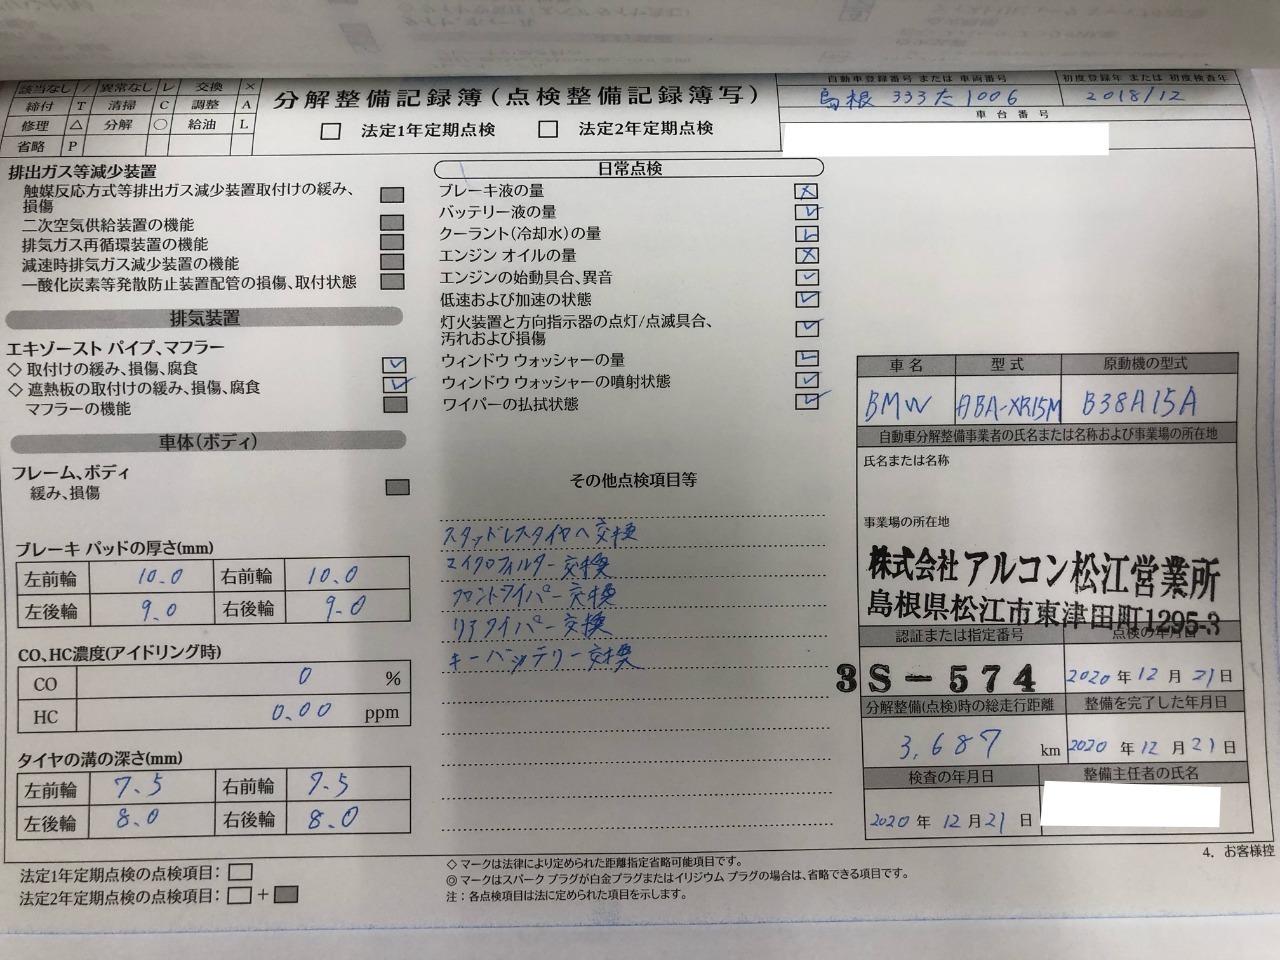 該当なし / 異常なし レ 交換 ×
締付 T 清掃 C 調整 A
修理 △ 分解 ○ 給油 L
省略 P
分解整備記録簿(点検整備記録簿写)
法定1年定期点検 法定2年定期点検
自動車登録番号 または 車両番号
島根 333た1006
初度登録年 または 初度検査年
2018/12
車台番号
排出ガス等減少装置
触媒反応方式等排出ガス減少装置取付けの緩み、
損傷
二次空気供給装置の機能
排気ガス再循環装置の機能
減速時排気ガス減少装置の機能
一酸化炭素等発散防止装置配管の損傷、取付状態
排気装置
エキゾースト パイプ、マフラー
◇ 取付けの緩み、損傷、腐食 レ
◇ 遮熱板の取付けの緩み、損傷、腐食 レ
マフラーの機能
車体(ボディ)
フレーム、ボディ
緩み、損傷
ブレーキ パッドの厚さ(mm)
左前輪 10.0 右前輪 10.0
左後輪 9.0 右後輪 9.0
CO、HC濃度(アイドリング時)
CO 0 %
HC 0.00 ppm
タイヤの溝の深さ(mm)
左前輪 7.5 右前輪 7.5
左後輪 8.0 右後輪 8.0
法定1年定期点検の点検項目:
法定2年定期点検の点検項目: +
日常点検
ブレーキ液の量 ×
バッテリー液の量 レ
クーラント(冷却水)の量 L
エンジン オイルの量 ×
エンジンの始動具合、異音 レ
低速および加速の状態 レ
灯火装置と方向指示器の点灯/点滅具合、
汚れおよび損傷 レ
ウィンドウ ウォッシャーの量 レ
ウィンドウ ウォッシャーの噴射状態 レ
ワイパーの払拭状態 レ
その他点検項目等
スタッドレスタイヤへ交換
マイクロフィルター交換
フロントワイパー交換
リアワイパー交換
キーバッテリー交換
◇ マークは法律により定められた距離指定省略可能項目です。
◎ マークはスパーク プラグが白金プラグまたはイリジウム プラグの場合は、省略できる項目です。
注：各点検項目は法に定められた項目を示します。
車名 型式 原動機の型式
BMW ABA-XR15M B38A15A
自動車分解整備事業者の氏名または名称および事業場の所在地
氏名または名称
事業場の所在地
株式会社 アルコン松江営業所
島根県松江市東津田町1295-3
認証または指定番号 点検の年月日
3S-574 2020 年 12 月 21 日
分解整備(点検)時の総走行距離 整備を完了した年月日
3,687 km 2020 年 12 月 21 日
検査の年月日 整備主任者の氏名
2020 年 12 月 21 日
4. お客様控